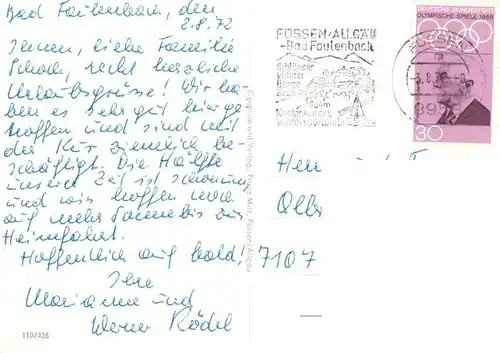 Bad Faulenbach, den
2.8.72
Ihnen, liebe Familie
Schach, recht herzliche
Urlaubsgrüsse! Wir ha-
ben es sehr gut
getroffen und sind mit
der Kur ziemlich be-
schäftigt. Die Hälfte
unserer Zeit ist schon um
und wir hoffen noch
auf mehr Sonne bis zur
Heimfahrt.
Hoffentlich auf bald!
Ihre
Marianne und
Werner Rödel
110/426
Eigentum und Verlag: Franz Milz, Füssen/Allgäu
FÜSSEN/ALLGÄU
-Bad Faulenbach
Schlösser
Wälder
Berge
Seen
Kneippkurort
Wintersportplatz
DEUTSCHE BUNDESPOST
OLYMPISCHE SPIELE 1968
30
Herrn
7107